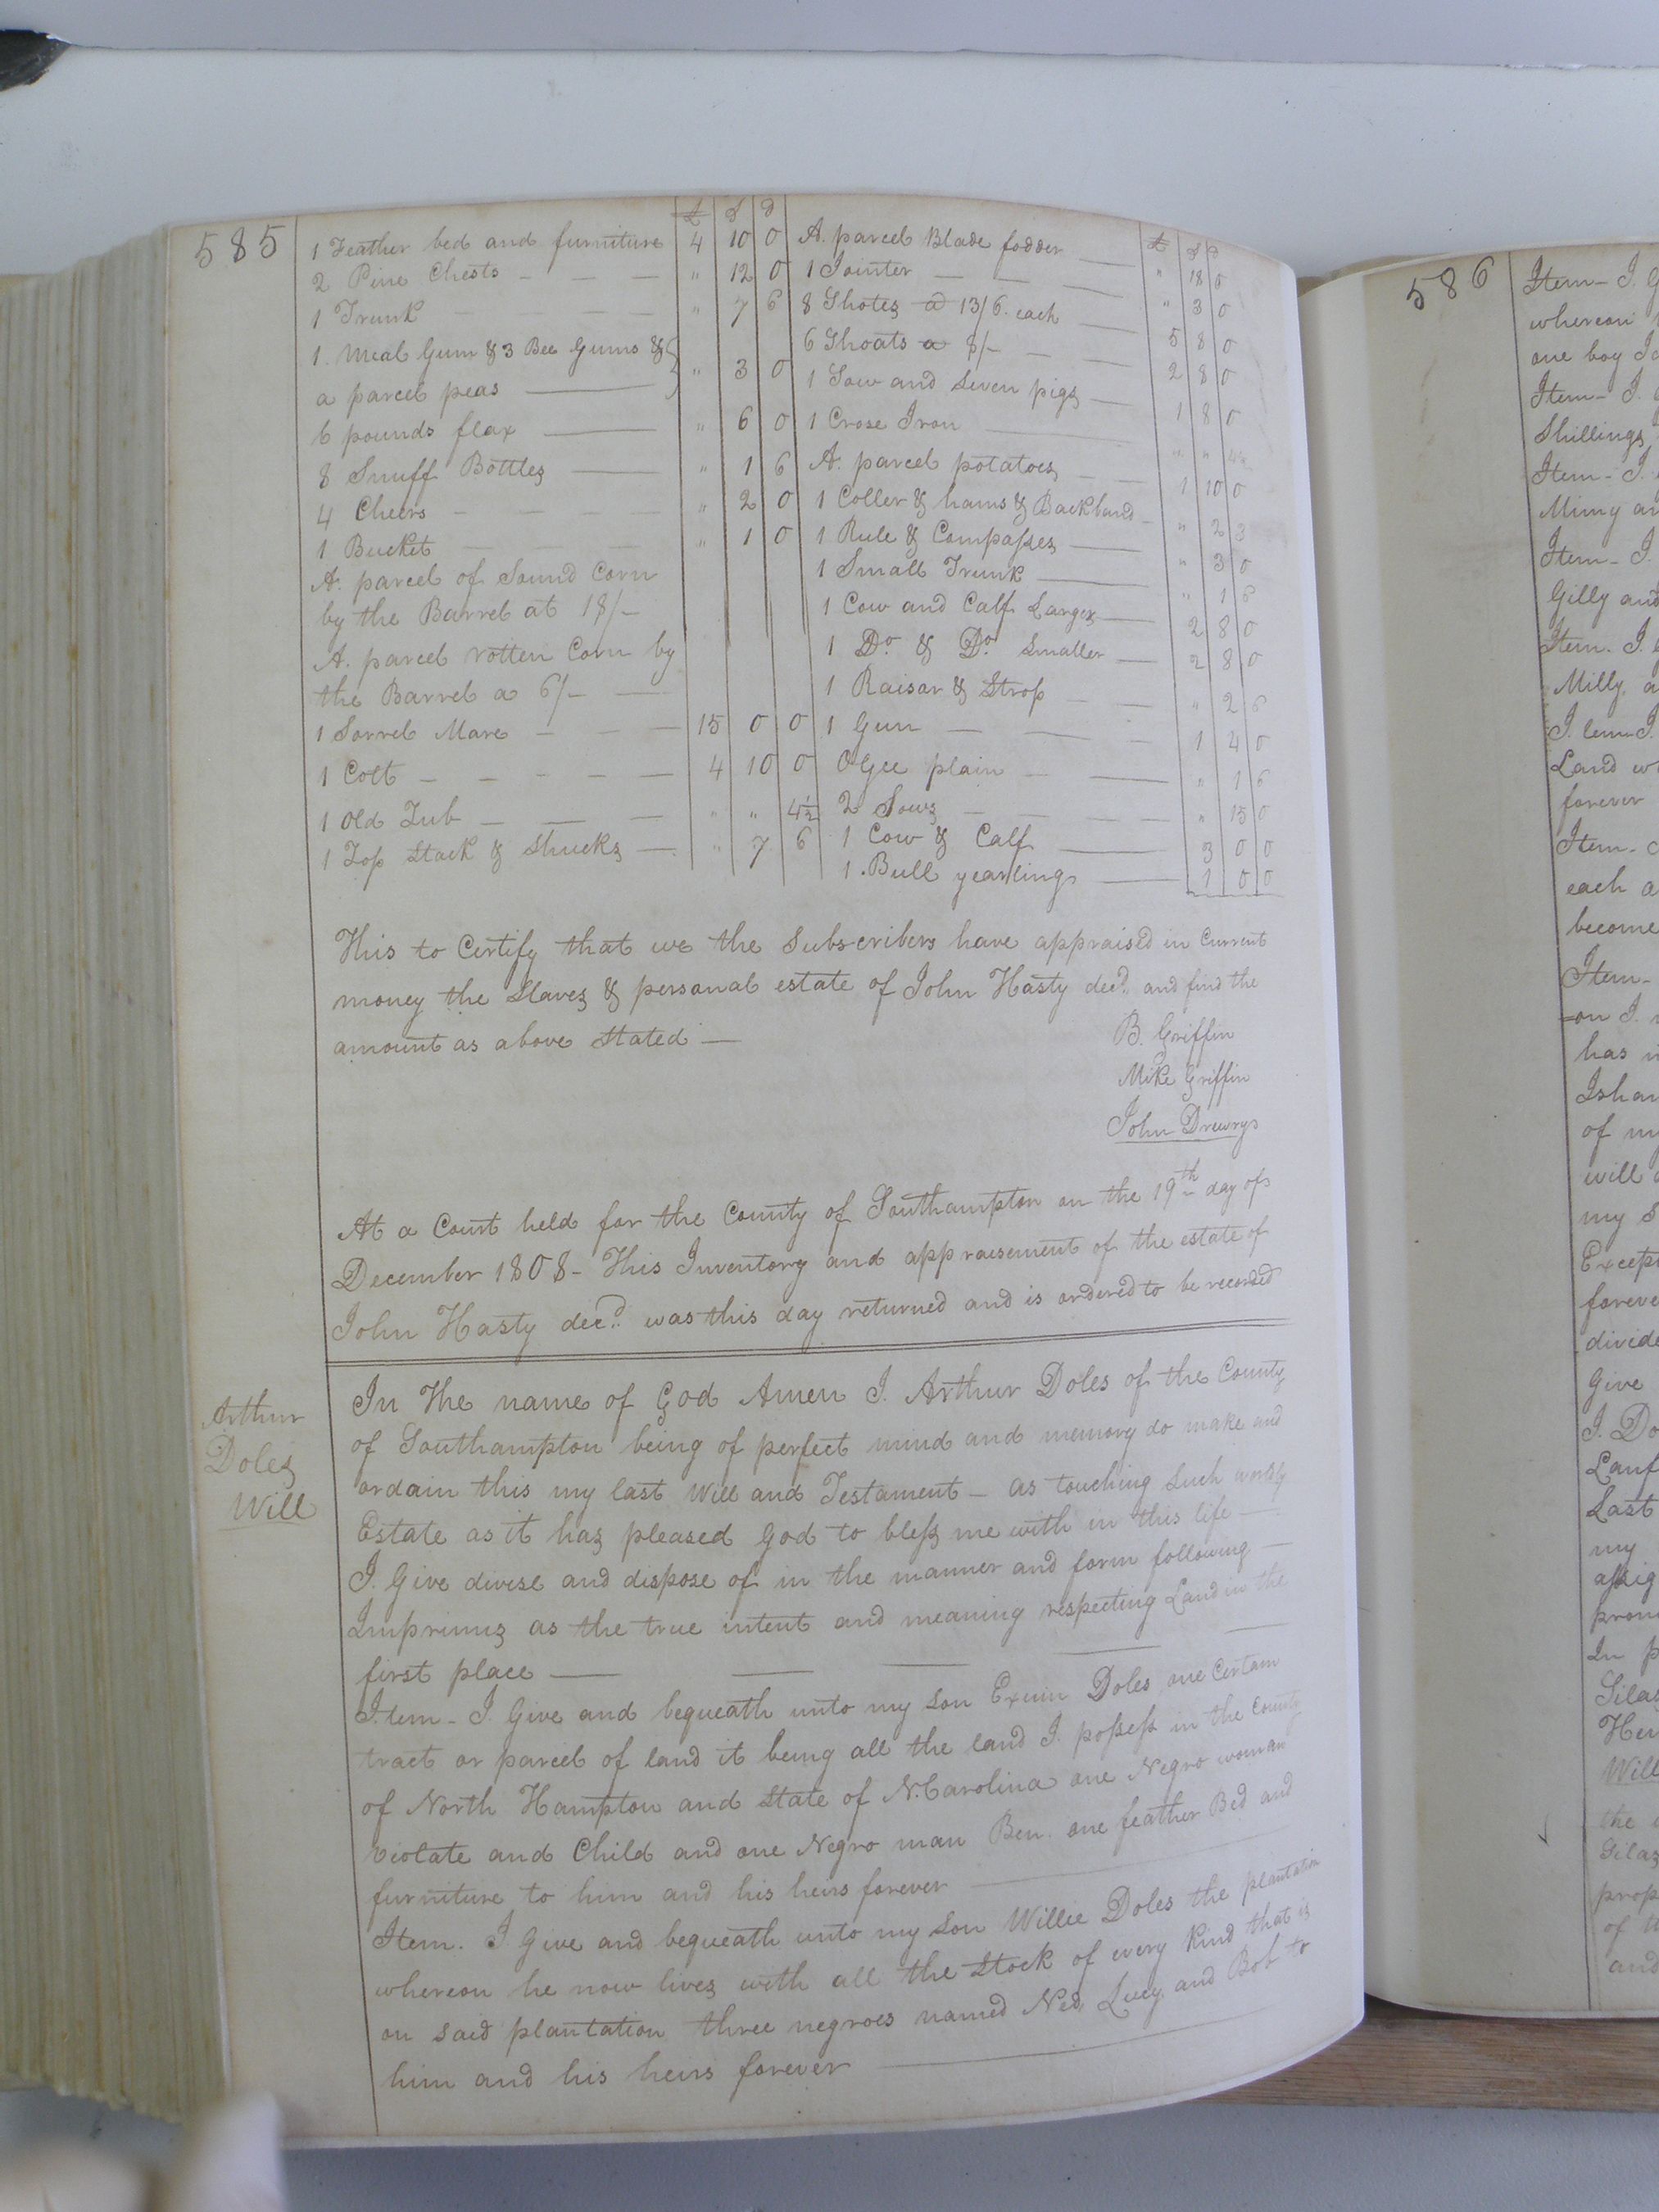 585
£ S D
1 Feather bed and furniture 4 10 0
2 Pine Chests — — — " 12 0
1 Trunk — — — — " 7 6
1. Meal Gum & 3 Bee Gums &
a parcel peas — " 3 0
6 pounds flax — " 6 0
8 Snuff Bottles — " 1 6
4 Cheers — — — — " 2 0
1 Bucket — — — " 1 0
A. parcel of Sound Corn
by the Barrel at 18/-
A. parcel rotten Corn by
the Barrel a 6/- —
1 Sorrel Mare — — — 15 0 0
1 Colt — — — — — 4 10 0
1 Old Tub — — — " " 4½
1 Top Stack & Shucks — " 7 6
£ S D
A. parcel Blade fodder — " 18 0
1 Jointer — — — " 3 0
8 Shotes a 13/6. each — 5 8 0
6 Shoats a 8/- — — 2 8 0
1 Sow and Seven pigs — 1 8 0
1 Crose Iron — " " 4½
A. parcel potatoes — — 1 10 0
1 Coller & hams & Backband — " 2 3
1 Rule & Compasses — " 3 0
1 Small Trunk — " 1 6
1 Cow and Calf Larger — 2 8 0
1 Do. & Do. Smaller — 2 8 0
1 Raisar & Strop — — " 2 6
1 Gun — — — 1 4 0
OGee plain — — " 1 6
2 Sows — — — — " 15 0
1 Cow & Calf — 3 0 0
1. Bull yearling — 1 0 0
This to Certify that we the Subscribers have appraised in Current
money the Slaves & personal estate of John Hasty decd. and find the
amount as above Stated —
B. Griffin
Mike Griffin
John Drewry
At a Court held for the County of Southampton on the 19th day of
December 1808 - This Inventory and appraisement of the estate of
John Hasty decd. was this day returned and is ordered to be recorded
Arthur
Doles
Will
In The name of God Amen I. Arthur Doles of the County
of Southampton being of perfect mind and memory do make and
ordain this my last Will and Testament — as touching Such worldly
Estate as it has pleased God to bless me with in this life —
I. Give divise and dispose of in the manner and form following —
Imprimus as the true intent and meaning respecting Land in the
first place — — — —
Item - I. Give and bequeath unto my Son Exum Doles one Certain
tract or parcel of land it being all the land I. possess in the County
of North Hampton and State of N. Carolina one Negro woman
Violate and Child and one Negro man Ben. one feather Bed and
furniture to him and his heirs forever —
Item. I Give and bequeath unto my Son Willie Doles the plantation
whereon he now lives with all the Stock of every kind that is
on said plantation three negroes named Ned, Lucy and Bob to
him and his heirs forever —
586
Item - I. G
whereon
one boy
Item - I.
Shillings
Item - I.
Mimy an
Item - I.
Gilly and
Item. I.
Milly, a
Item I.
Land w
forever
Item -
each a
become
Item -
=on I.
has
Isha
of my
will
my S
Except
foreve
divide
Give
I. Do
Last
my
assig
prono
In p
Silas
Will
the
Silas
prop
of
and